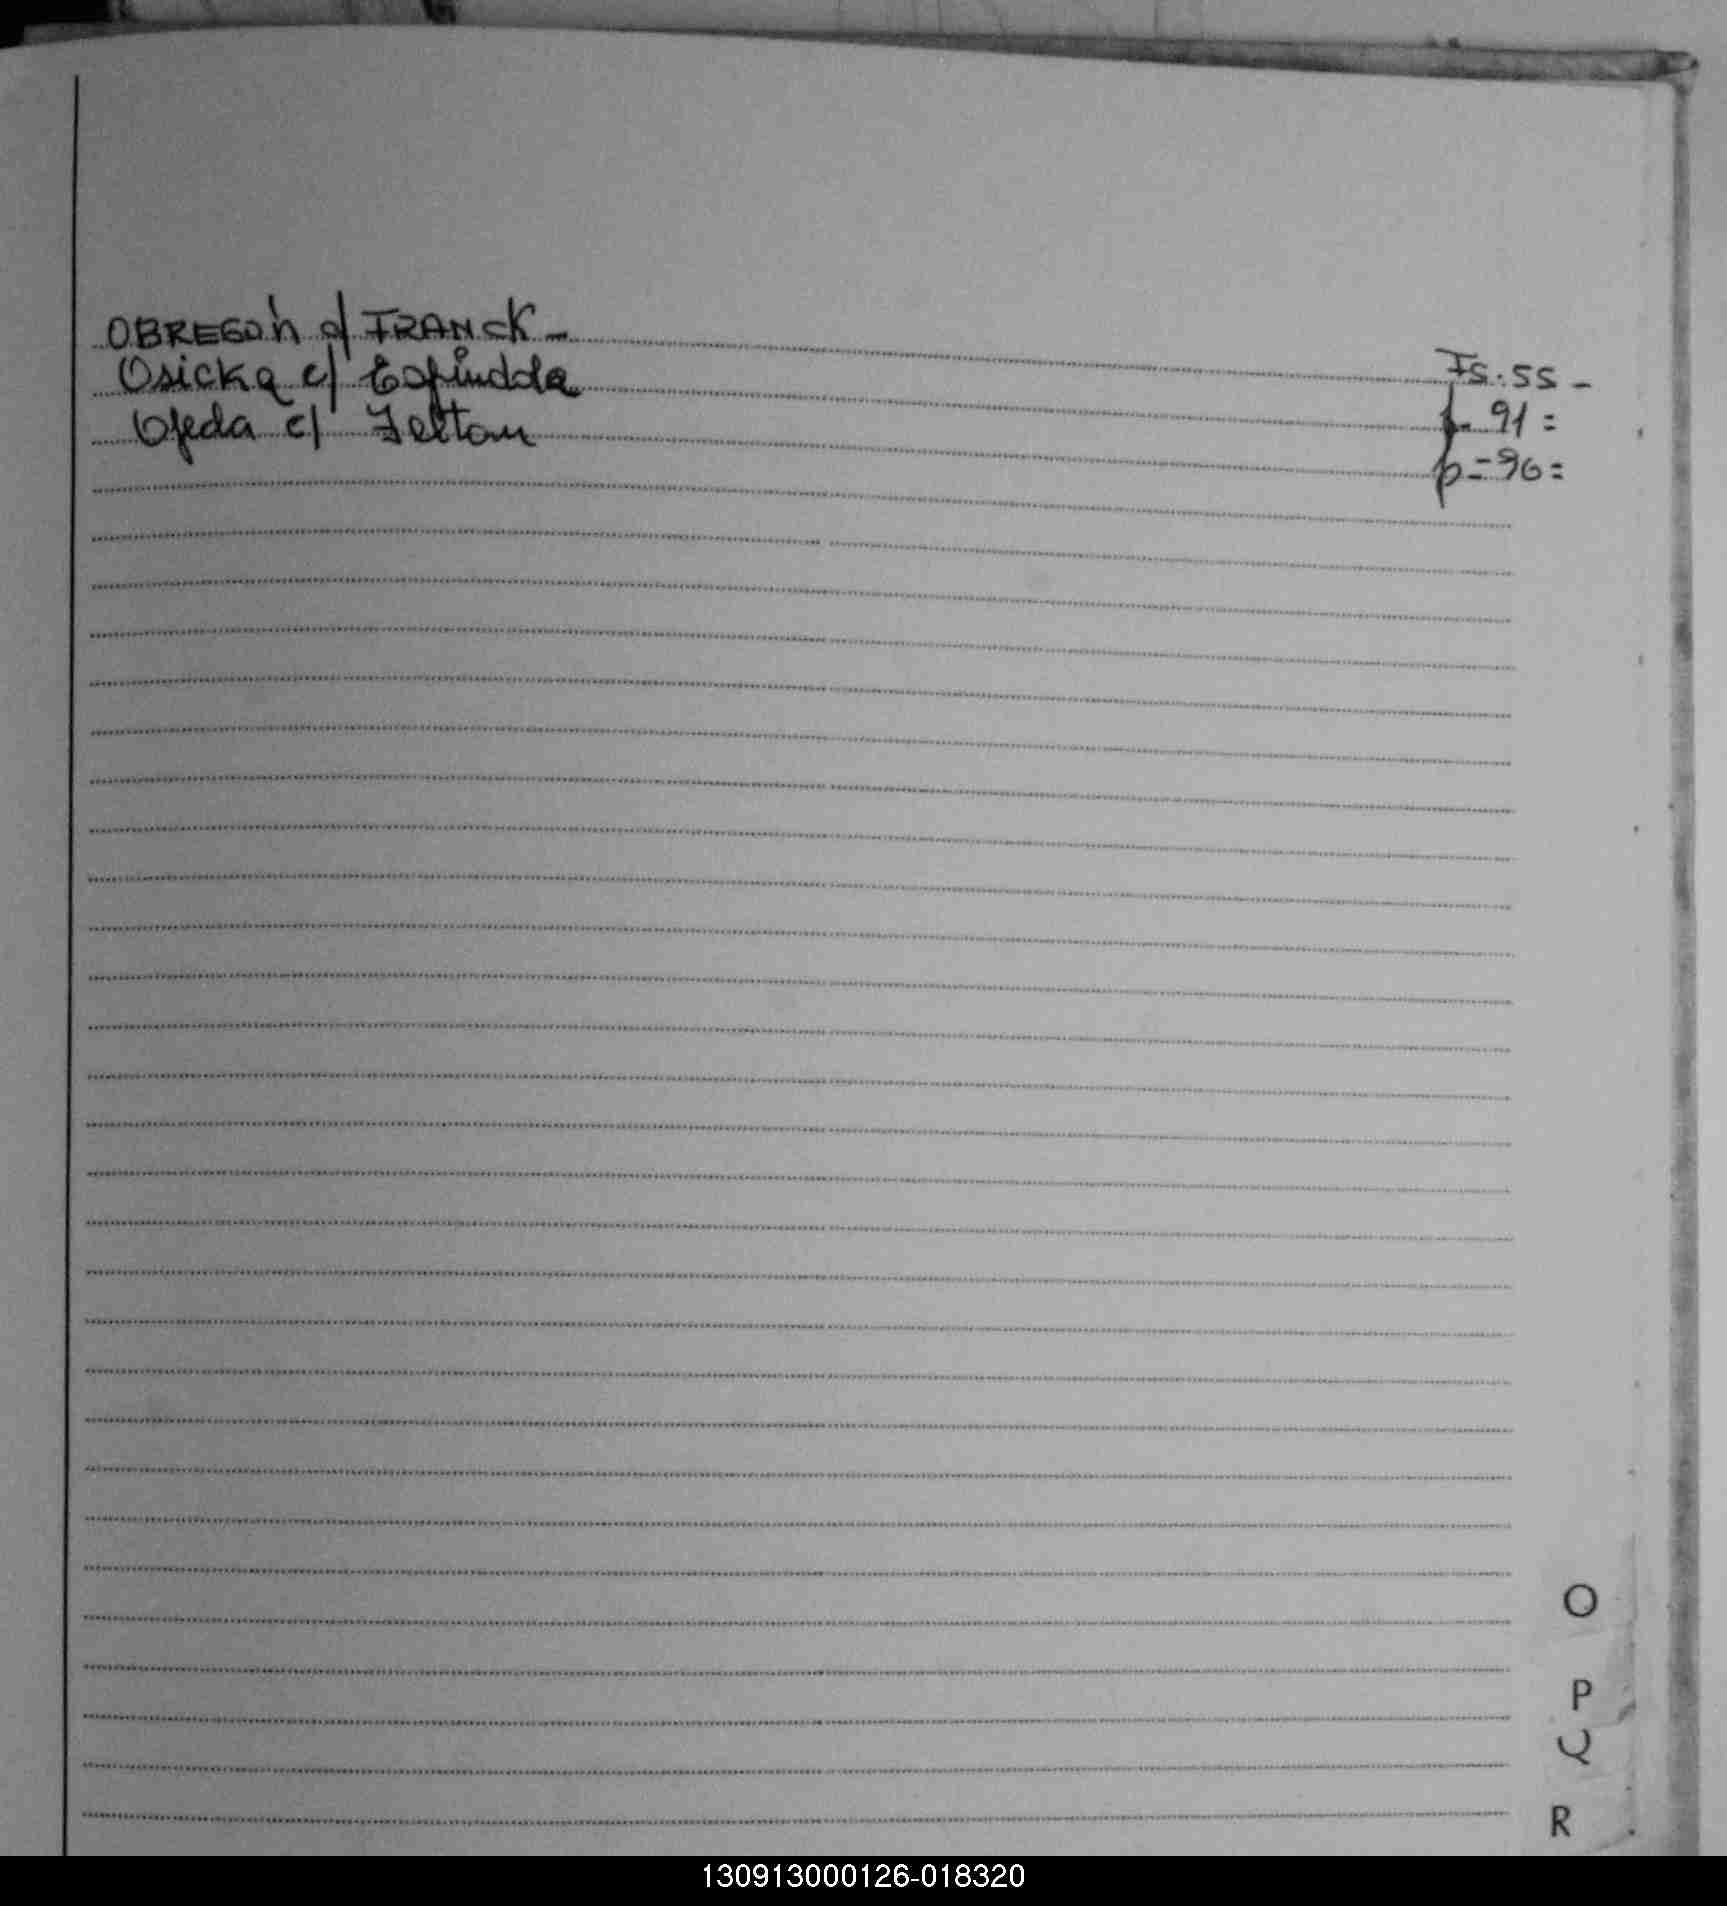 OBREGÓN c/ FRANCK - Fs. 55 -
Osicka c/ Espíndola p - 91 =
Ojeda c/ Feltan p = 96 =
O
P
Q
R
130913000126-018320